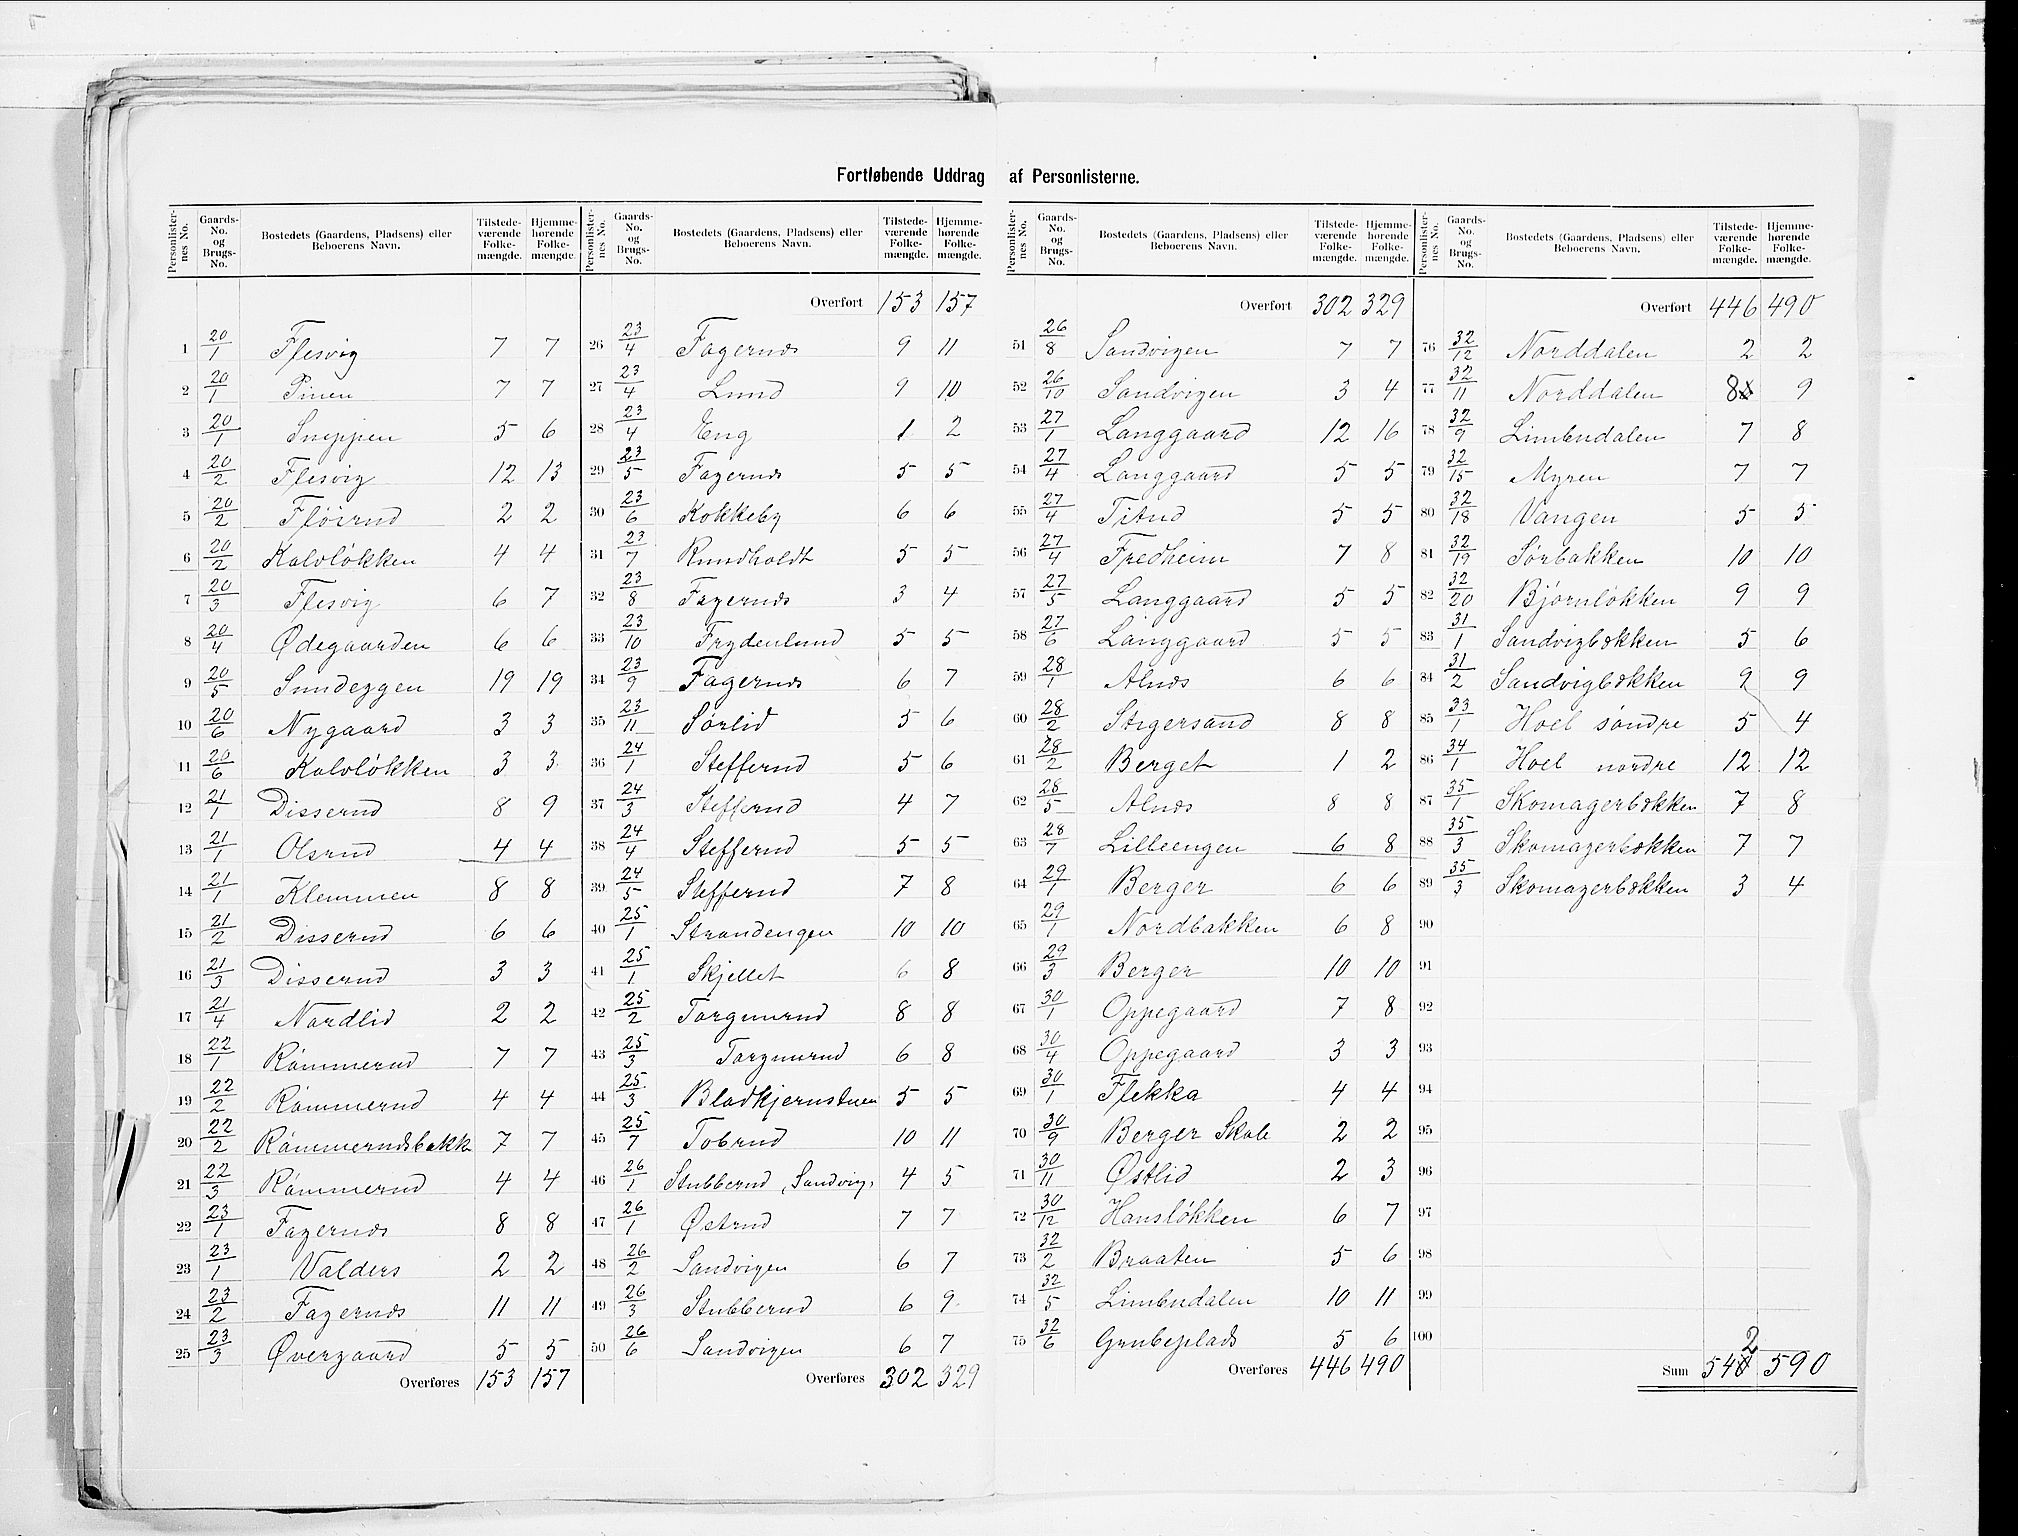 Fortløbende Uddrag af Personlisternе.
Personlisternes No. | Gaards-No. og Brugs-No. | Bostedets (Gaardens, Pladsens) eller Beboerens Navn. | Tilstedeværende Folkemængde. | Hjemmehørende Folkemængde.
1 20/1 Flesvig 7 7
2 20/1 Pinen 7 7
3 20/1 Sneppen 5 6
4 20/2 Flesvig 12 13
5 20/2 Fløirud 2 2
6 20/2 Kalvløkken 4 4
7 20/3 Flesvig 6 7
8 20/4 Ødegaarden 6 6
9 20/5 Sundeggen 19 19
10 20/6 Nygaard 3 3
11 20/6 Kalvløkken 3 3
12 21/1 Disserud 8 9
13 21/1 Olsrud 4 4
14 21/1 Klemmen 8 8
15 21/2 Disserud 6 6
16 21/3 Disserud 3 3
17 21/4 Nordlid 2 2
18 22/1 Rømmerud 7 7
19 22/2 Rømmerud 4 4
20 22/2 Rømmerudsbakk 7 7
21 22/3 Rømmerud 4 4
22 23/1 Fagernæs 8 8
23 23/1 Valders 2 2
24 23/2 Fagernæs 11 11
25 23/3 Øvergaard 5 5
Overføres 153 157
Personlisternes No. | Gaards-No. og Brugs-No. | Bostedets (Gaardens, Pladsens) eller Beboerens Navn. | Tilstedeværende Folkemængde. | Hjemmehørende Folkemængde.
Overført 153 157
26 23/4 Fagernæs 9 11
27 23/4 Lund 9 10
28 23/4 Eng 1 2
29 23/5 Fagernæs 5 5
30 23/6 Kokkeby 6 6
31 23/7 Rundholdt 5 5
32 23/8 Fagernæs 3 4
33 23/10 Frydenlund 5 5
34 23/9 Fagernæs 6 7
35 23/11 Sørlid 5 6
36 24/1 Stefferud 5 6
37 24/3 Stefferud 4 7
38 24/4 Stefferud 5 5
39 24/5 Stefferud 7 8
40 25/1 Strandengen 10 10
41 25/1 Skjellet 6 8
42 25/2 Torgunrud 8 8
43 25/3 Torgunrud 6 8
44 25/3 Bladkjernstuen 5 5
45 25/7 Tobrud 10 11
46 26/1 Stubberud, Sandvig, 4 5
47 26/1 Østrud 7 7
48 26/2 Sandvigen 6 7
49 26/3 Stubberud 6 9
50 26/6 Sandvigen 6 7
Overføres 302 329
Personlisternes No. | Gaards-No. og Brugs-No. | Bostedets (Gaardens, Pladsens) eller Beboerens Navn. | Tilstedeværende Folkemængde. | Hjemmehørende Folkemængde.
Overført 302 329
51 26/8 Sandvigen 7 7
52 26/10 Sandvigen 3 4
53 27/1 Langgaard 12 16
54 27/4 Langgaard 5 5
55 27/4 Titud 5 5
56 27/4 Fredheim 7 8
57 27/5 Langgaard 5 5
58 27/6 Langgaard 5 5
59 28/1 Alnæs 6 6
60 28/2 Stigersand 8 8
61 28/2 Berget 1 2
62 28/5 Alnæs 8 8
63 28/7 Lilleengen 6 8
64 29/1 Berger 6 6
65 29/1 Nordbakken 6 8
66 29/3 Berger 10 10
67 30/1 Oppegaard 7 8
68 30/4 Oppegaard 3 3
69 30/1 Flekka 4 4
70 30/9 Berger Skole 2 2
71 30/11 Østlid 2 3
72 30/12 Hansløkken 6 7
73 32/2 Braaten 5 6
74 32/5 Limbudalen 10 11
75 32/6 Grubeplads 5 6
Overføres 446 490
Personlisternes No. | Gaards-No. og Brugs-No. | Bostedets (Gaardens, Pladsens) eller Beboerens Navn. | Tilstedeværende Folkemængde. | Hjemmehørende Folkemængde.
Overført 446 490
76 32/12 Norddalen 2 2
77 32/11 Norddalen 8 9
78 32/9 Limbudalen 7 8
79 32/15 Myren 7 7
80 32/18 Vangen 5 5
81 32/19 Sørbakken 10 10
82 32/20 Bjørnløkken 9 9
83 31/1 Sandvigbækken 5 6
84 31/2 Sandvigbækken 9 9
85 33/1 Hoel søndre 5 4
86 34/1 Hoel nordre 12 12
87 35/1 Skomagerbækken 7 8
88 35/3 Skomagerbækken 7 7
89 35/3 Skomagerbækken 3 4
90
91
92
93
94
95
96
97
98
99
100
Sum 542 590